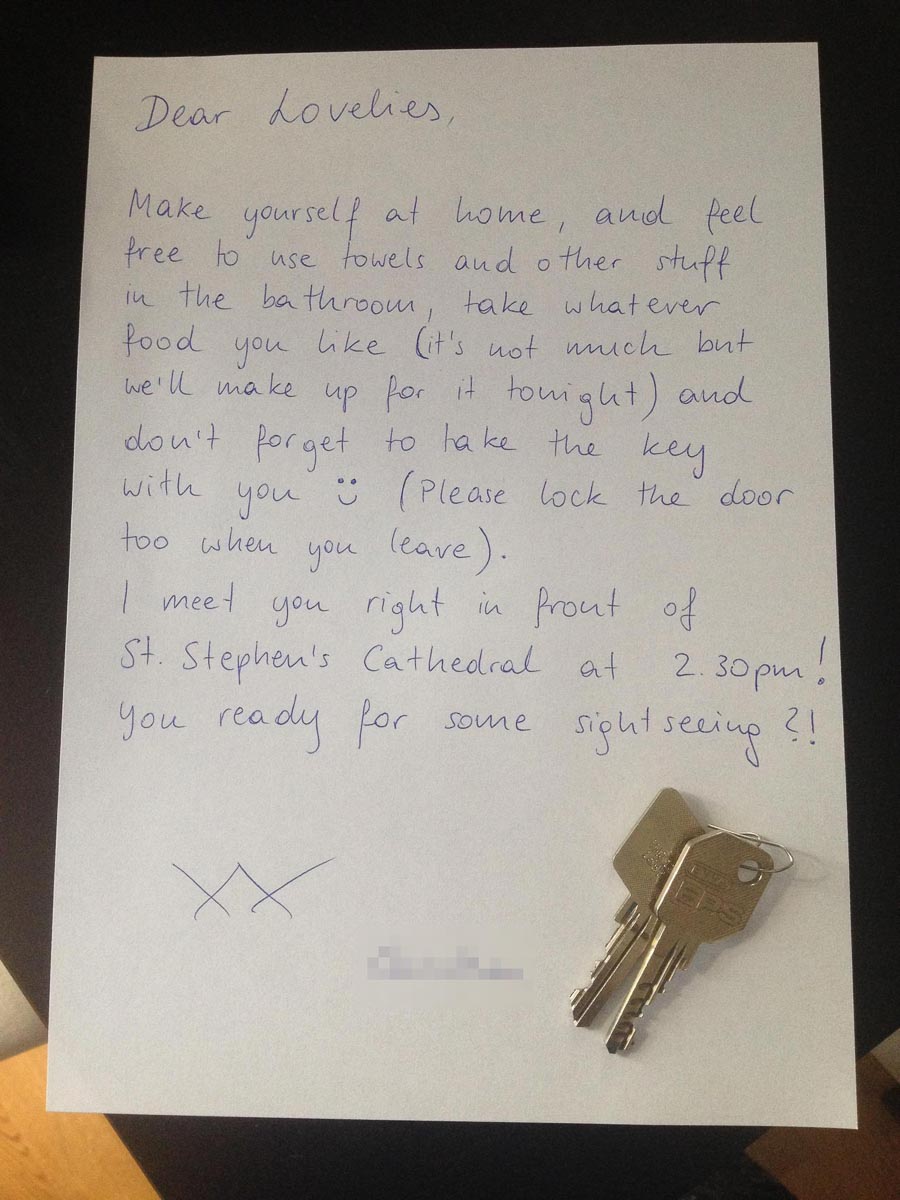 Dear Lovelies,
Make yourself at home, and feel
free to use towels and other stuff
in the bathroom, take whatever
food you like (it's not much but
we'll make up for it tonight) and
don't forget to take the key
with you :) (Please lock the door
too when you leave).
I meet you right in front of
St. Stephen's Cathedral at 2.30pm!
you ready for some sightseeing?!
XX
EPS